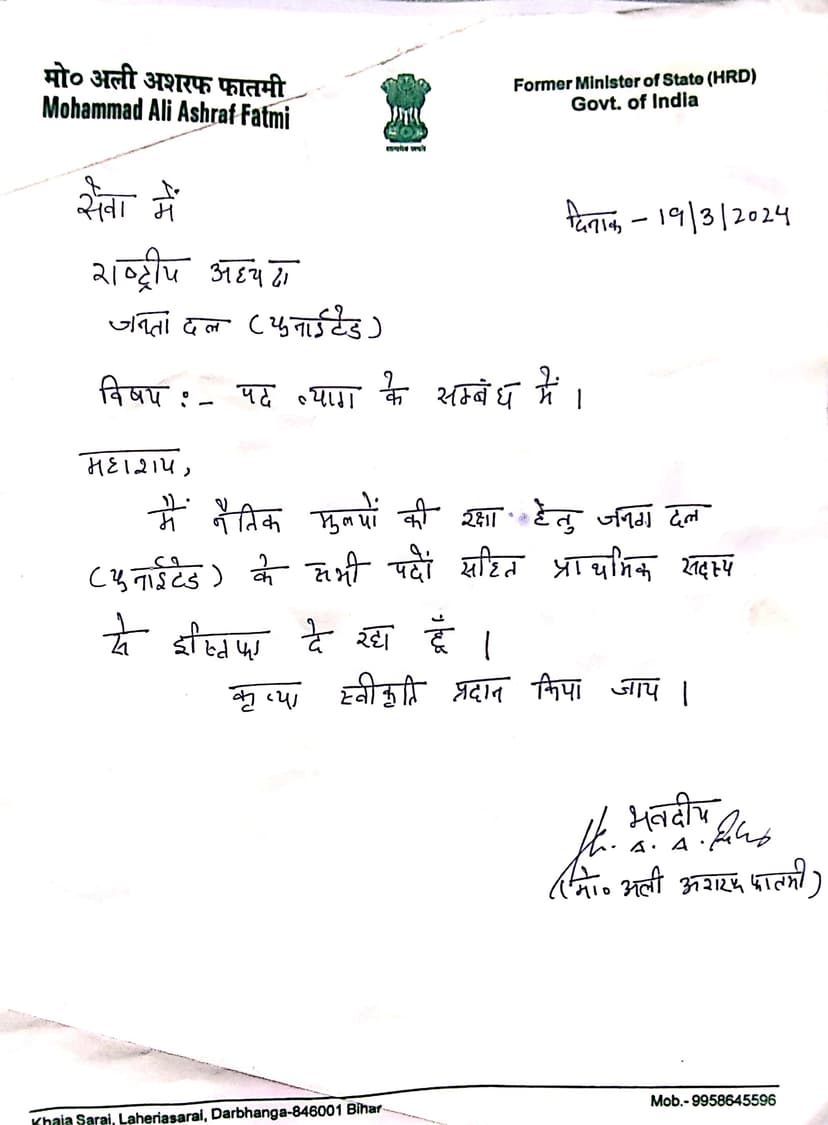 मो० अली अशरफ फातमी
Mohammad Ali Ashraf Fatmi
Former Minister of State (HRD)
Govt. of India
सत्यमेव जयते
सेवा में
दिनाक - 19/3/2024
राष्ट्रीय अध्यक्ष
जनता दल (युनाईटेड)
विषय :- पद त्याग के सम्बंध में ।
महाशय,
मैं नैतिक मुल्यों की रक्षा हेतु जनता दल
(युनाईटेड) के सभी पदों सहित प्राथमिक सदस्य
से इस्तिफा दे रहा हूँ ।
कृप्या स्वीकृति प्रदान किया जाय ।
भवदीय
(मो० अली अशरफ फातमी)
Khaja Sarai, Laheriasarai, Darbhanga-846001 Bihar
Mob.- 9958645596